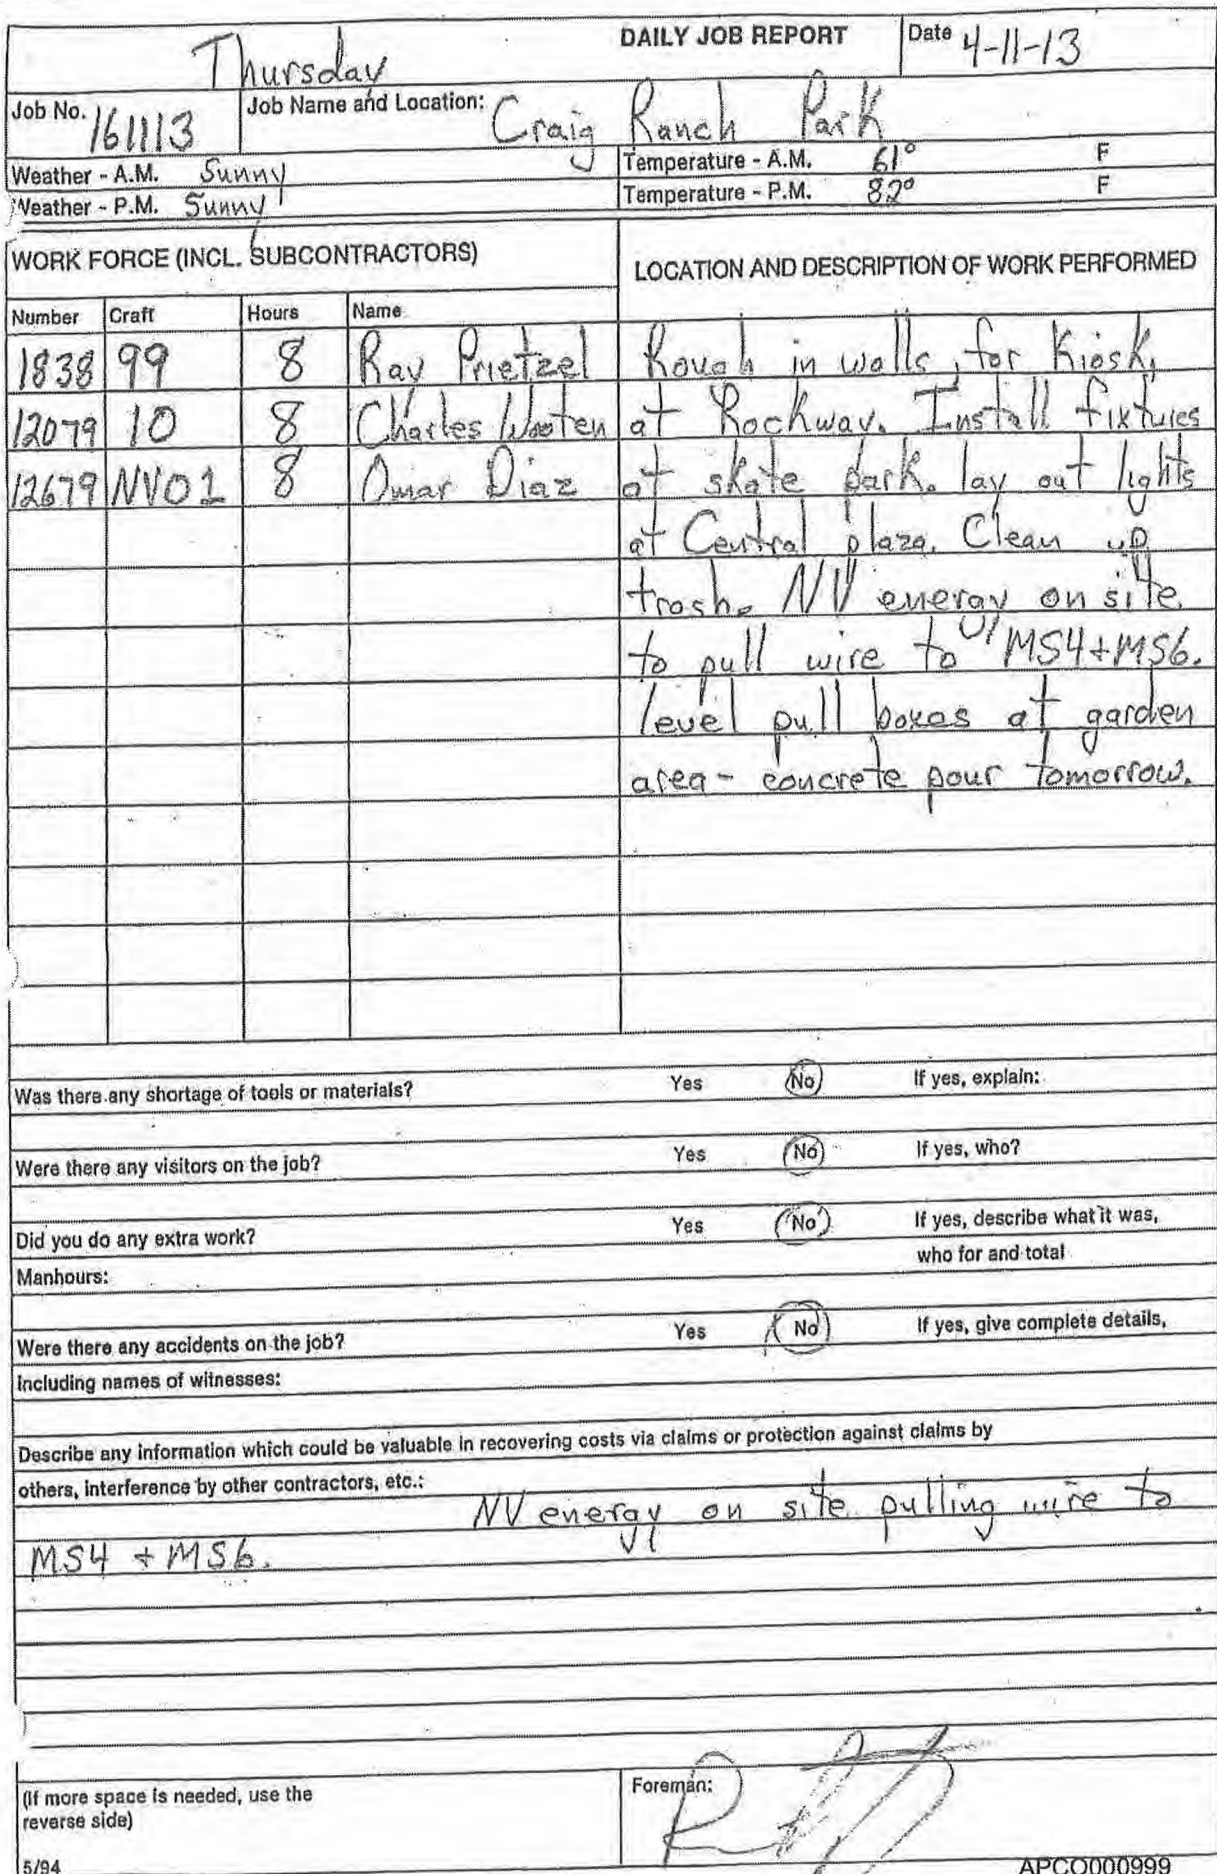 DAILY JOB REPORT
Date 4-11-13
Thursday
Job No. 161113
Job Name and Location: Craig Ranch Park
Weather - A.M. Sunny
Temperature - A.M. 61° F
Weather - P.M. Sunny
Temperature - P.M. 82° F
WORK FORCE (INCL. SUBCONTRACTORS)
LOCATION AND DESCRIPTION OF WORK PERFORMED
Number Craft Hours Name
1838 99 8 Ray Prietzel Rough in walls, for Kiosk,
12079 10 8 Charles Wooten at Rockway. Install fixtures
12679 NV01 8 Omar Diaz at skate park. lay out lights
at Central plaza. Clean up
trash. NV energy on site
to pull wire to MS4+MS6.
level pull boxes at garden
area - concrete pour tomorrow.
Was there any shortage of tools or materials? Yes No If yes, explain:
Were there any visitors on the job? Yes No If yes, who?
Did you do any extra work? Yes No If yes, describe what it was,
who for and total
Manhours:
Were there any accidents on the job? Yes No If yes, give complete details,
including names of witnesses:
Describe any information which could be valuable in recovering costs via claims or protection against claims by
others, interference by other contractors, etc.:
NV energy on site pulling wire to
MS4 + MS6.
(If more space is needed, use the
reverse side)
Foreman:
5/94
APCO000999